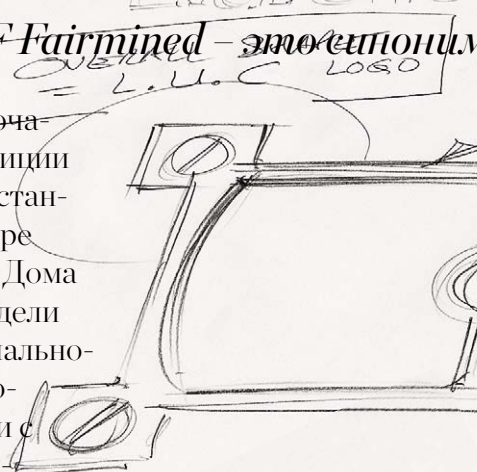 F Fairmined – это синоним
OVERALL SHAPE
= L.U.C LOGO
оча-
иции
стан-
ре
Дома
дели
нально-
о-
и с